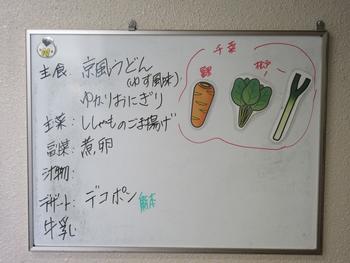 主食: 京風うどん
(ゆず風味)
ゆかりおにぎり
主菜: ししゃものごま揚げ
副菜: 煮卵
汁物:
デザート: デコポン 熊本
牛乳
千葉